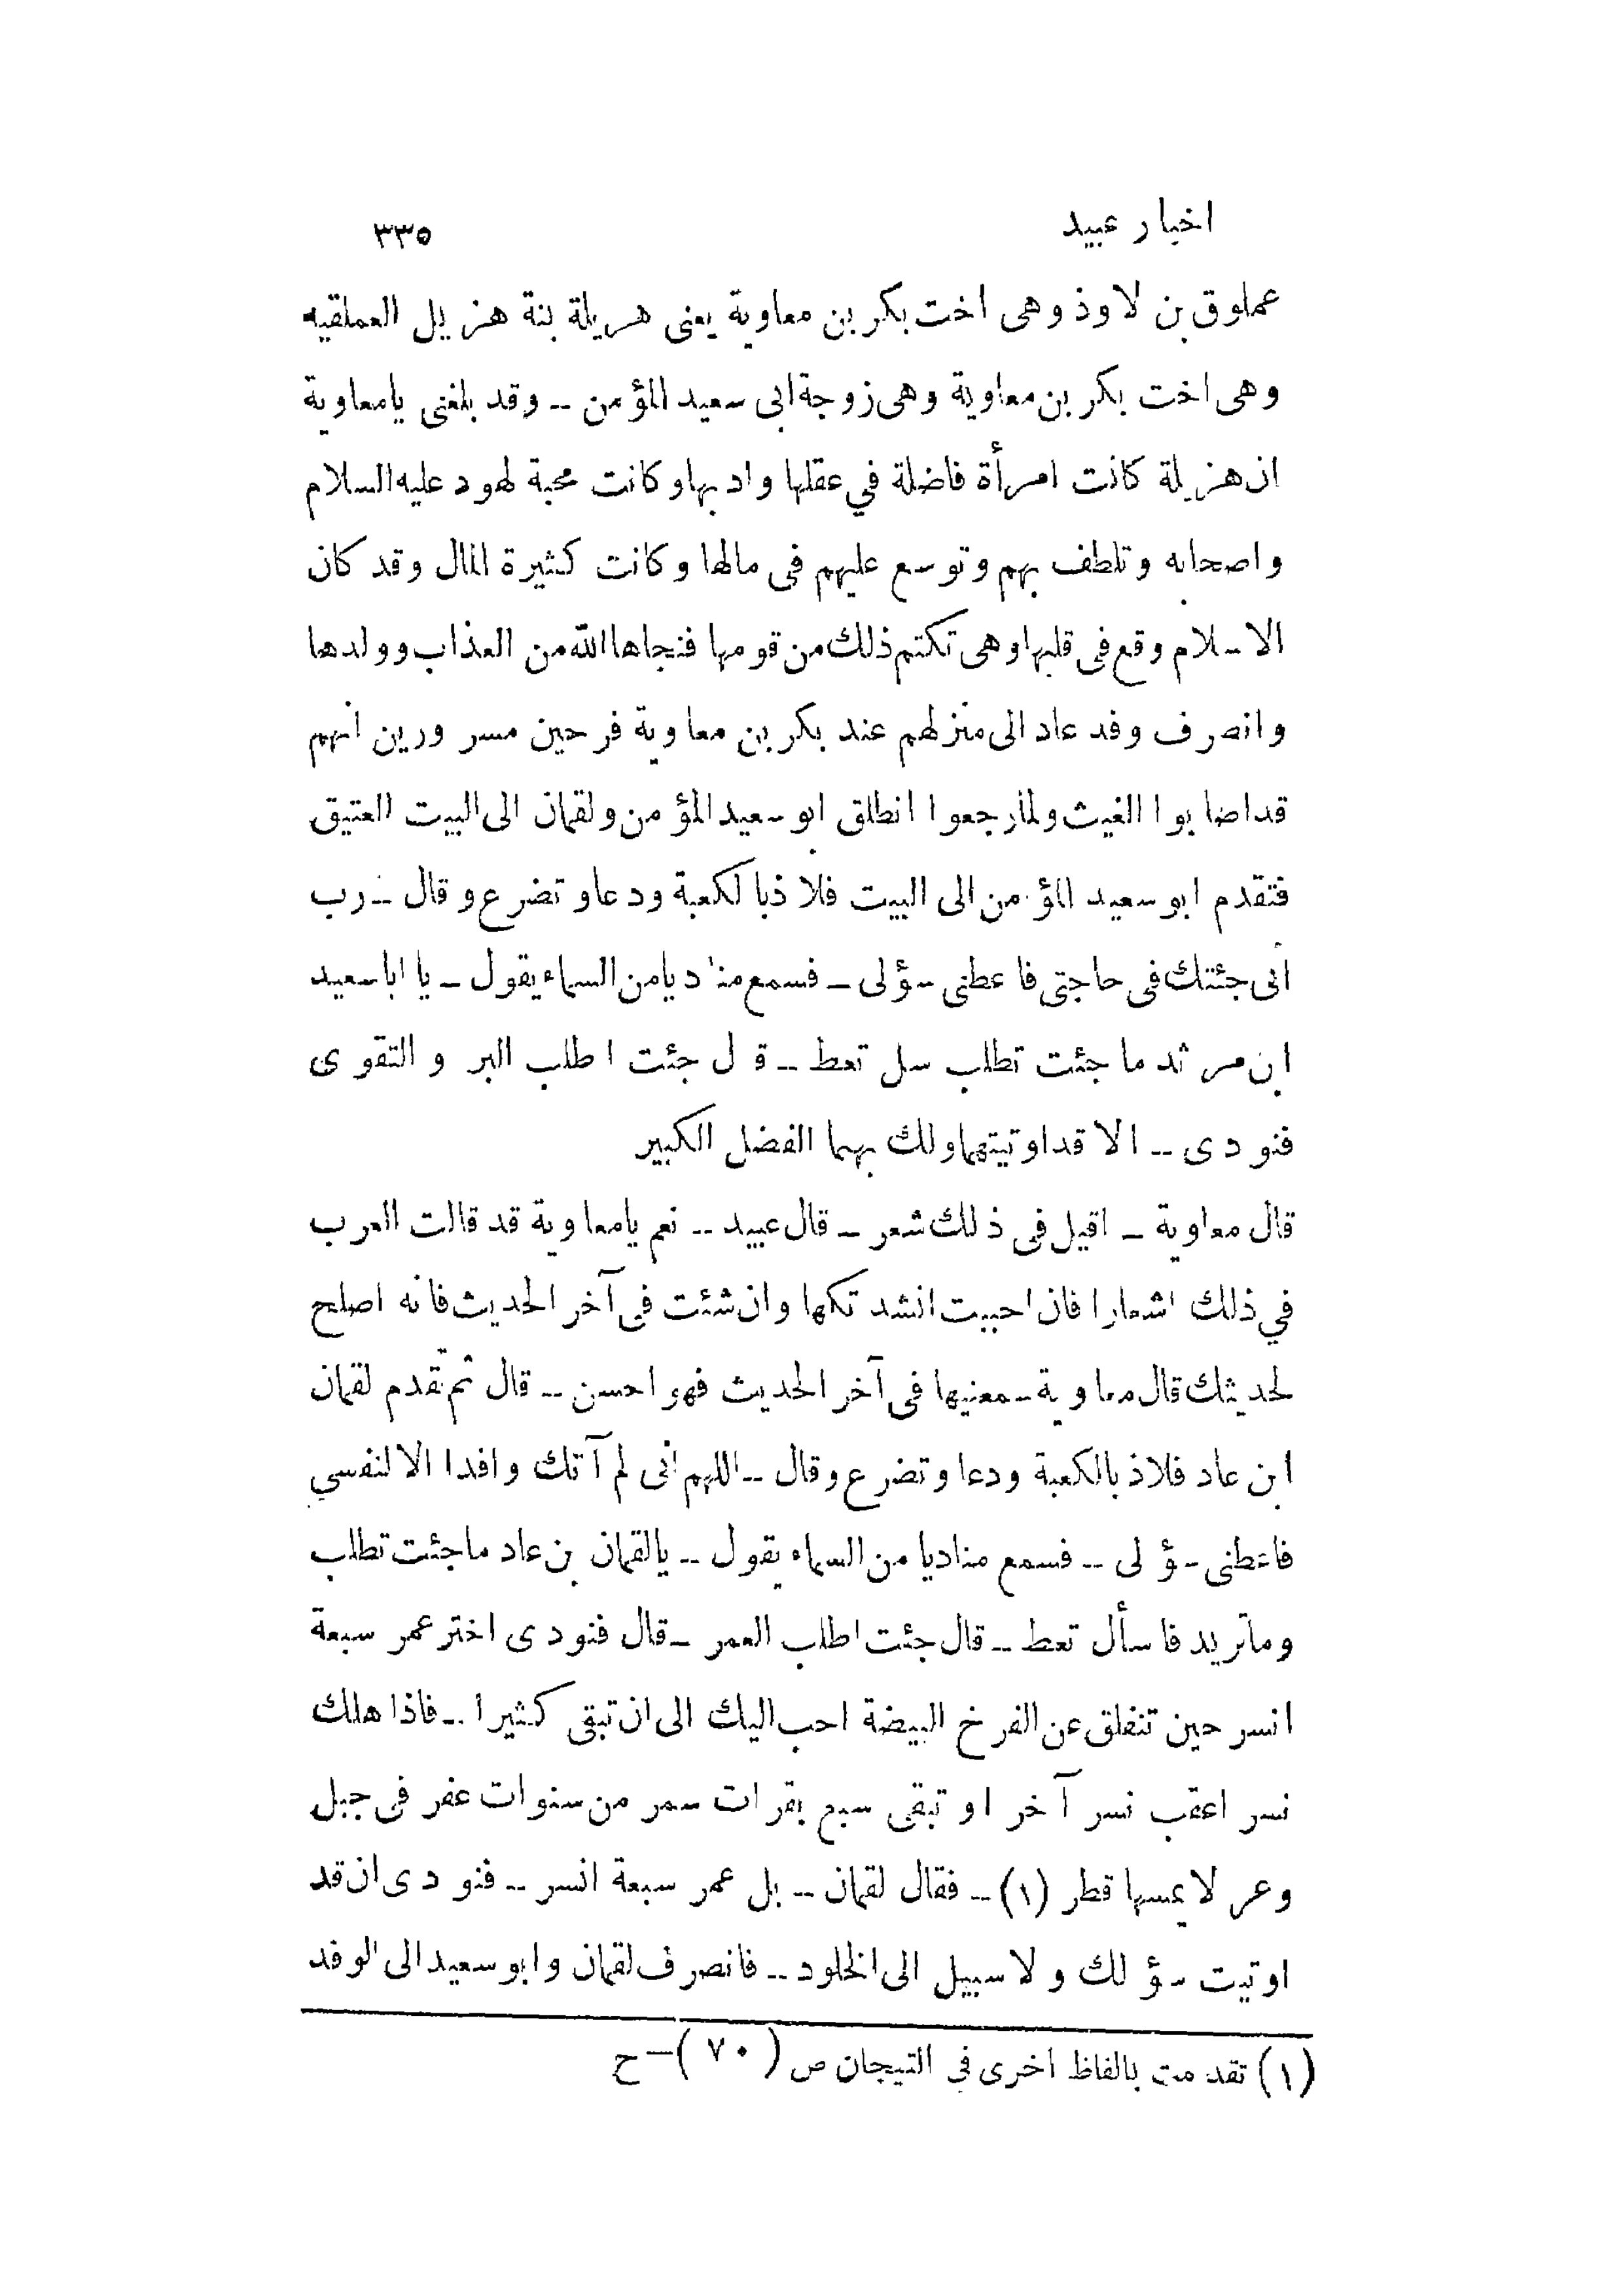 اخبار عبيد ٣٣٥
عملوق بن لاوذ وهى اخت بكر بن معاوية يعنى هريلة بنة هزيل العملقيه
وهى اخت بكر بن معاوية وهى زوجة ابى سعيد المؤمن -- وقد بلغنى يامعاوية
ان هزيلة كانت امرأة فاضلة في عقلها وادبها وكانت محبة لهود عليه السلام
واصحابه وتلطف بهم وتوسع عليهم فى مالها وكانت كثيرة المال وقد كان
الاسلام وقع فى قلبها وهى تكتم ذلك من قومها فنجاها الله من العذاب وولدها
وانصرف وفد عاد الى منزلهم عند بكر بن معاوية فرحين مسرورين انهم
قد اصابوا الغيث ولما رجعوا انطلق ابو سعيد المؤمن ولقمان الى البيت العتيق
فتقدم ابو سعيد المؤمن الى البيت فلاذ بالكعبة ودعا وتضرع وقال -- رب
انى جئتك فى حاجتى فاعطنى سؤلى -- فسمع مناديا من السماء يقول -- يا ابا سعيد
ابن مرثد ما جئت تطلب سل تعط -- قال جئت اطلب البر والتقوى
فنودى -- الا قد اوتيتهما ولك بهما الفضل الكبير
قال معاوية -- اقيل فى ذلك شعر -- قال عبيد -- نعم يامعاوية قد قالت العرب
في ذلك اشعارا فان احببت انشدتكها وان شئت فى آخر الحديث فانه اصلح
لحديثك قال معاوية سمعنيها فى آخر الحديث فهو احسن -- قال ثم تقدم لقمان
ابن عاد فلاذ بالكعبة ودعا وتضرع وقال -- اللهم انى لم آتك وافدا الا لنفسي
فاعطنى سؤلى -- فسمع مناديا من السماء يقول -- يالقمان بن عاد ماجئت تطلب
وماتريد فاسأل تعط -- قال جئت اطلب العمر -- قال فنودى اختر عمر سبعة
انسر حين تنفلق عن الفرخ البيضة احب اليك الى ان تبقى كثيرا -- فاذا هلك
نسر اعقب نسر آخر او تبقى سبع بقرات سمر من سنوات عفر فى جبل
وعر لا يمسها قطر (١) -- فقال لقمان -- بل عمر سبعة انسر -- فنودى ان قد
اوتيت سؤلك ولا سبيل الى الخلود -- فانصرف لقمان وابو سعيد الى الوفد
(١) تقدمت بالفاظ اخرى في التيجان ص (٧٠) - ح